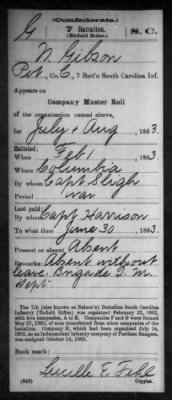 (Confederate.)
G 7 Battalion. S. C.
(Enfield Rifles)
N. Gibson
Pvt, Co. C, 7 Batt'n South Carolina Inf.
Appears on
Company Muster Roll
of the organization named above,
for July & Aug, 1863.
Enlisted:
When Feb 1, 1863.
Where Columbia
By whom Capt Sleigh
Period war
Last paid:
By whom Capt Harrison
To what time June 30, 1863.
Present or absent Absent
Remarks: Absent without
leave. Brigade Q. M.
Dept.
The 7th (also known as Nelson's) Battalion South Carolina
Infantry (Enfield Rifles) was organized February 22, 1862,
with five companies, A to E. Companies F and G were formed
May 1862, of men transferred from other companies of the
battalion. Company H, which had been organized July 14,
1862, as an independent company of Partisan Rangers,
was assigned October 14, 1862.
Book mark:
Lucelle E. Fehl
(642) Copyist.